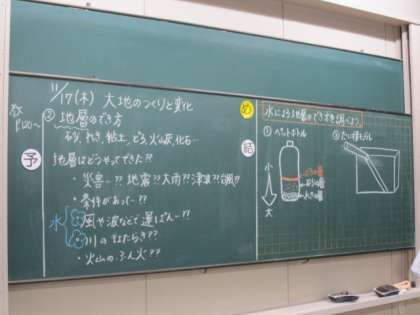 11/17(木) 大地のつくりと変化
教P120～
② 地層のでき方
砂、れき、粘土、どろ、火山灰、化石…
予
地層はどうやってできた??
・災害…?? 地震?? 大雨?? 津波??台風??
・条件があって…??
水
・風や波などで運ばん…??
・川のはたらき??
・火山のふん火??
め
水による地層のでき方を調べよう。
結
① ペットボトル
小
大
どろの層
砂の層
れきの層
② たい積モデル